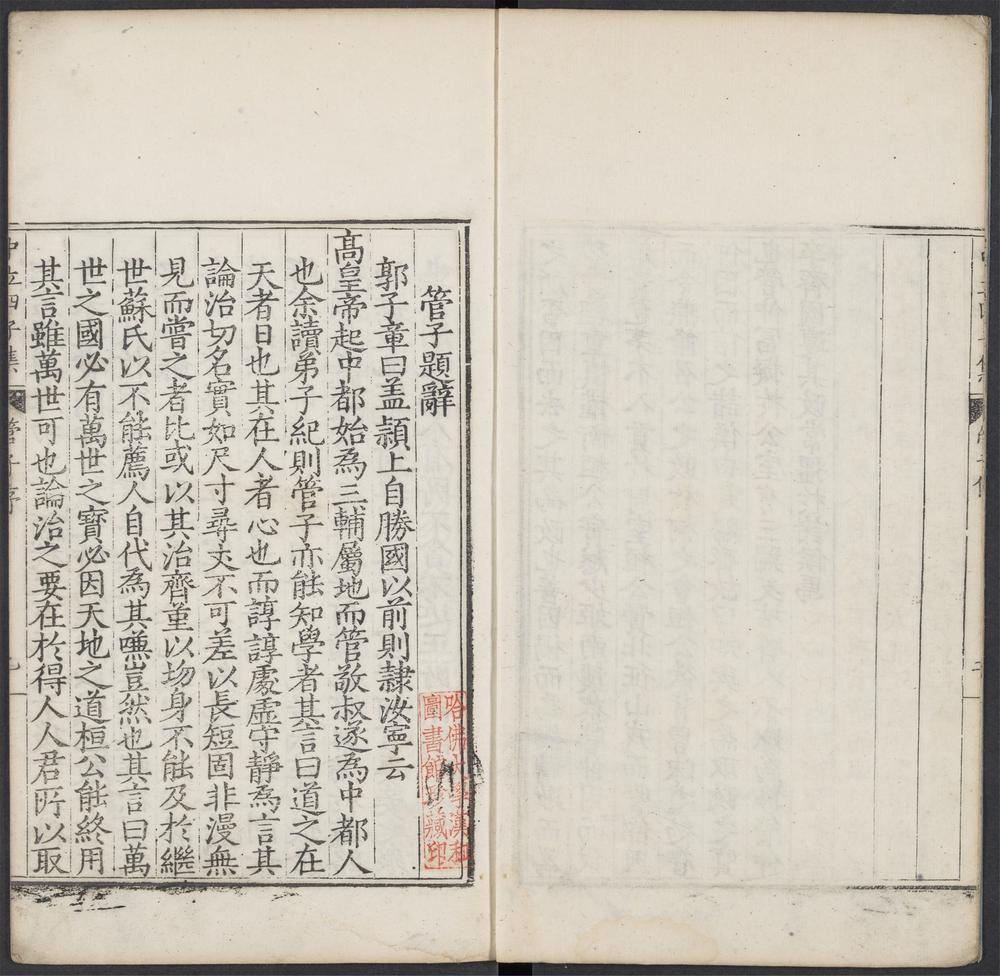 管子題辭
郭子章曰盖頴上自勝國以前則隸汝寧云
高皇帝起中都始為三輔屬地而管敬叔遂為中都人
也余讀弟子紀則管子亦能知學者其言曰道之在
天者日也其在人者心也而諄諄處虛守靜為言其
論治切名實如尺寸尋丈不可差以長短固非漫無
見而嘗之者比或以其治齊董以刼身不能及於繼
世蘇氏以不能薦人自代為其嗛豈然也其言曰萬
世之國必有萬世之寶必因天地之道桓公能終用
其言雖萬世可也論治之要在於得人人君所以取
中立四子集
管子序
一
哈佛大學漢和
圖書館珍藏印